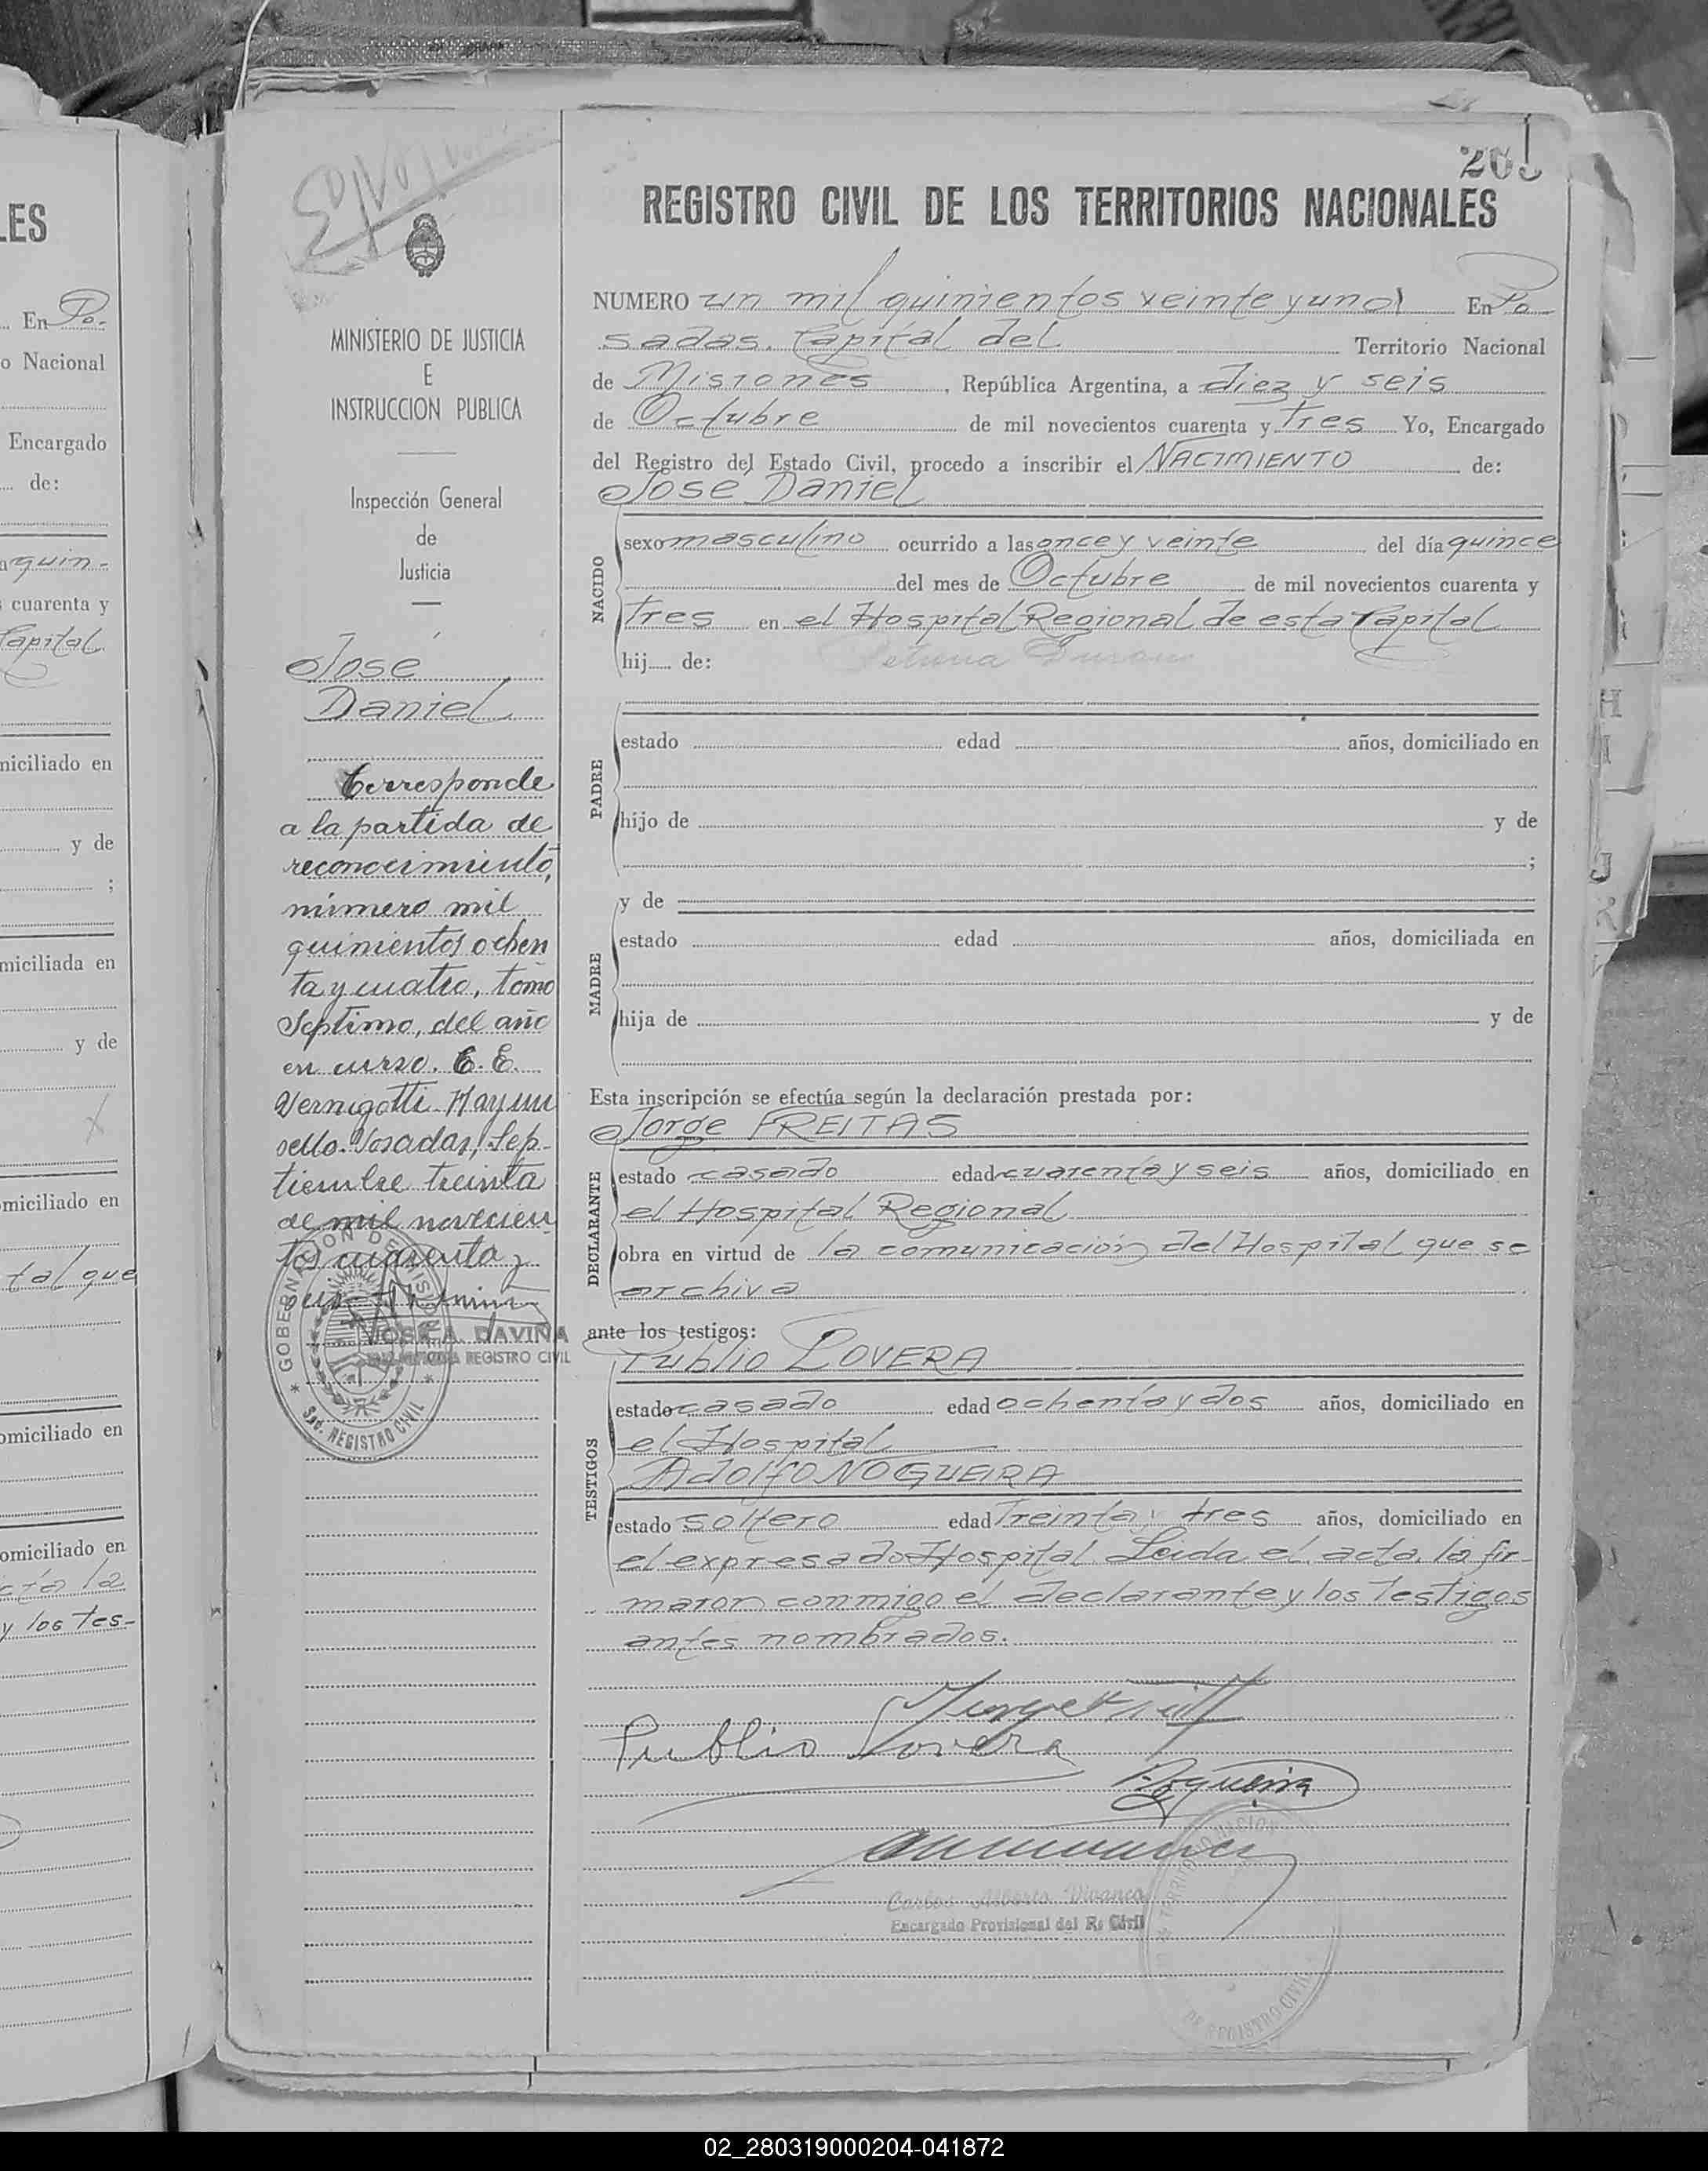 LES
En Po-
o Nacional
Encargado
de:
aquin-
cuarenta y
Capital
miciliado en
y de
;
miciliada en
y de
omiciliado en
tal que
omiciliado en
omiciliado en
cta la
y los tes-
205
MINISTERIO DE JUSTICIA
E
INSTRUCCION PUBLICA
Inspección General
de
Justicia
José
Daniel
Corresponde
a la partida de
reconocimiento,
número mil
quinientos ochen
ta y cuatro, tomo
Septimo, del año
en curso. E. E.
Vernigotti. Hay un
sello. Posadas, Sep-
tiembre treinta
de mil novecien
tos cuarenta y
JOSE A. DAVIÑA
REGISTRO CIVIL
GOBERNACION DE MISIONES
REGISTRO CIVIL
REGISTRO CIVIL DE LOS TERRITORIOS NACIONALES
NUMERO un mil quinientos veinte y uno En Po
sadas. Capital del Territorio Nacional
de Misiones, República Argentina, a diez y seis
de Octubre de mil novecientos cuarenta y tres Yo, Encargado
del Registro del Estado Civil, procedo a inscribir el NACIMIENTO de:
José Daniel
NACIDO
sexo masculino ocurrido a las once y veinte del día quince
del mes de Octubre de mil novecientos cuarenta y
tres en el Hospital Regional de esta Capital
hij de:
PADRE
estado edad años, domiciliado en
hijo de y de
;
y de
MADRE
estado edad años, domiciliada en
hija de y de
Esta inscripción se efectúa según la declaración prestada por:
Jorge FREITAS
DECLARANTE
estado casado edad cuarenta y seis años, domiciliado en
el Hospital Regional
obra en virtud de la comunicación del Hospital que se
archiva
ante los testigos:
Publio LOVERA
TESTIGOS
estado casado edad ochenta y dos años, domiciliado en
el Hospital
Adolfo NOGUEIRA
estado soltero edad treinta y tres años, domiciliado en
el expresado Hospital. Leida el acta, la fir-
maron conmigo el declarante y los testigos
antes nombrados.
Publio Lovera
Nogueira
Carlos Alberto Vivanco
Encargado Provisional del R. Civil
DE REGISTRO CIVIL
02_280319000204-041872